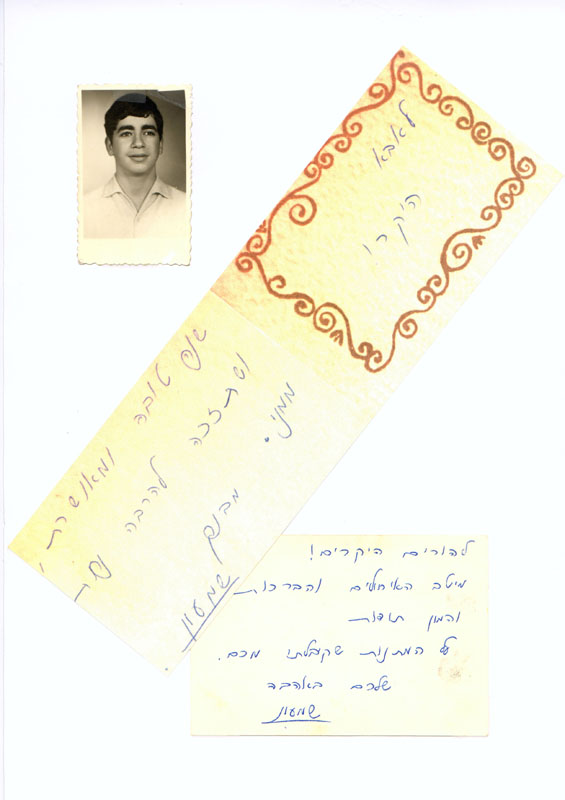 לאבא
היקר!
שנה טובה ומאושרת,
ושתזכה להרבה נחת
ממני.
מבנך
שמעון
להורים היקרים!
מיטב האיחולים והברכות
והמון תודות
על המתנות שקיבלתי מכם.
שלכם באהבה
שמעון